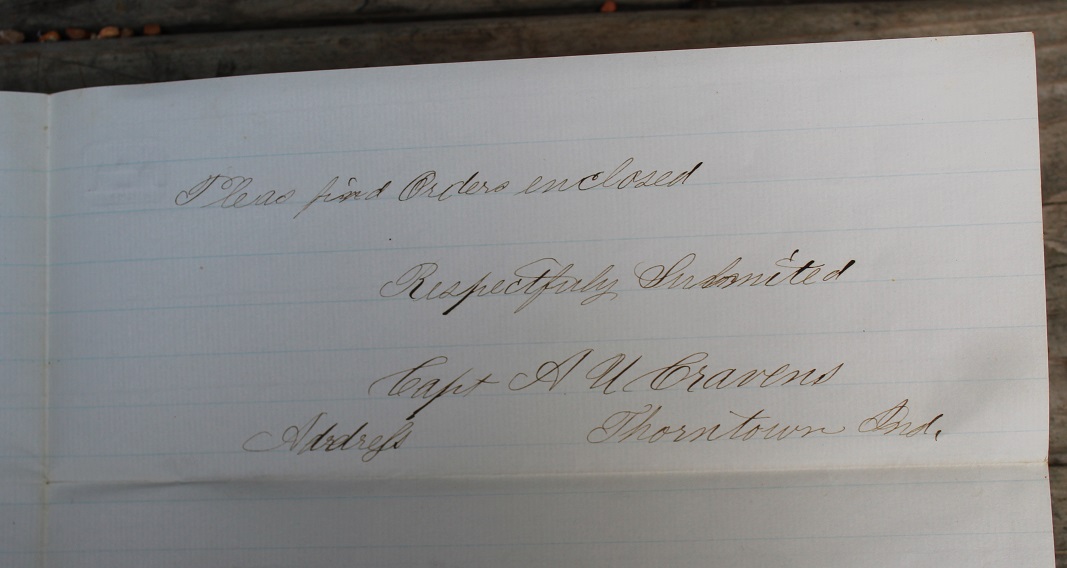 Pleas find Orders enclosed
Respectfuly Submited
Capt A U Cravens
Address Thorntown Ind.